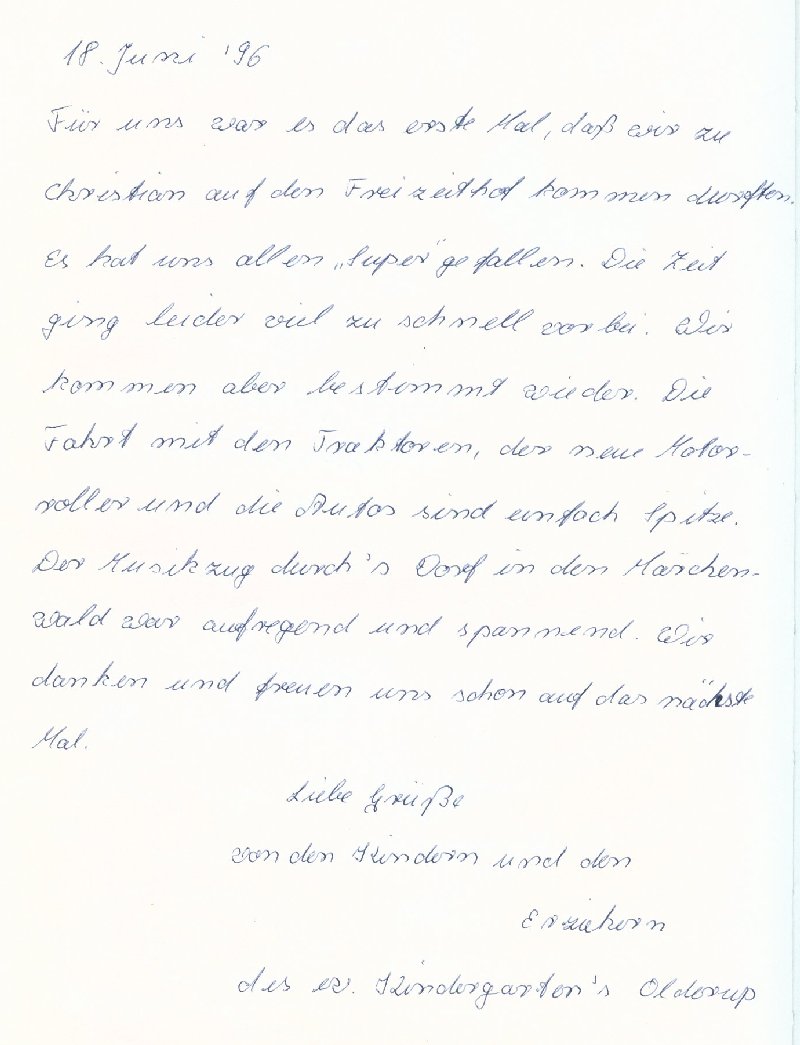 18. Juni '96
Für uns war es das erste Mal, daß wir zu
Christian auf den Freizeithof kommen durften.
Es hat uns allen „Super" gefallen. Die Zeit
ging leider viel zu schnell vorbei. Wir
kommen aber bestimmt wieder. Die
Fahrt mit den Traktoren, der neue Motor-
roller und die Autos sind einfach Spitze.
Der Musikzug durch's Dorf in den Märchen-
wald war aufregend und spannend. Wir
danken und freuen uns schon auf das nächste
Mal.
Liebe Grüße
von den Kindern und den
Erziehern
des ev. Kindergarten's Olderup